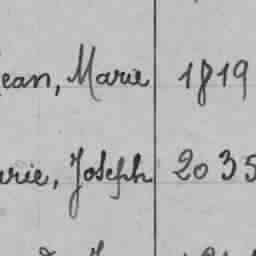 ean, Marie 1819
arie, Joseph 2035